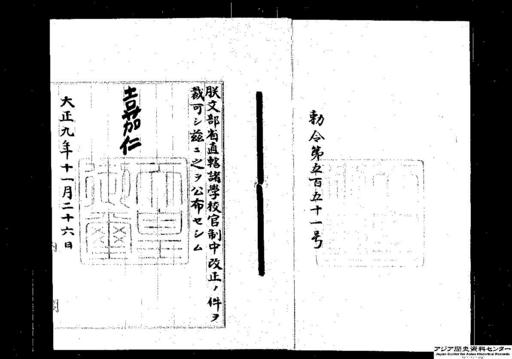 勅令第五百五十一号
朕文部省直轄諸学校官制中改正ノ件ヲ
裁可シ茲ニ之ヲ公布セシム
嘉仁
天皇御璽
大正九年十一月二十六日
アジア歴史資料センター
Japan Center for Asian Historical Records